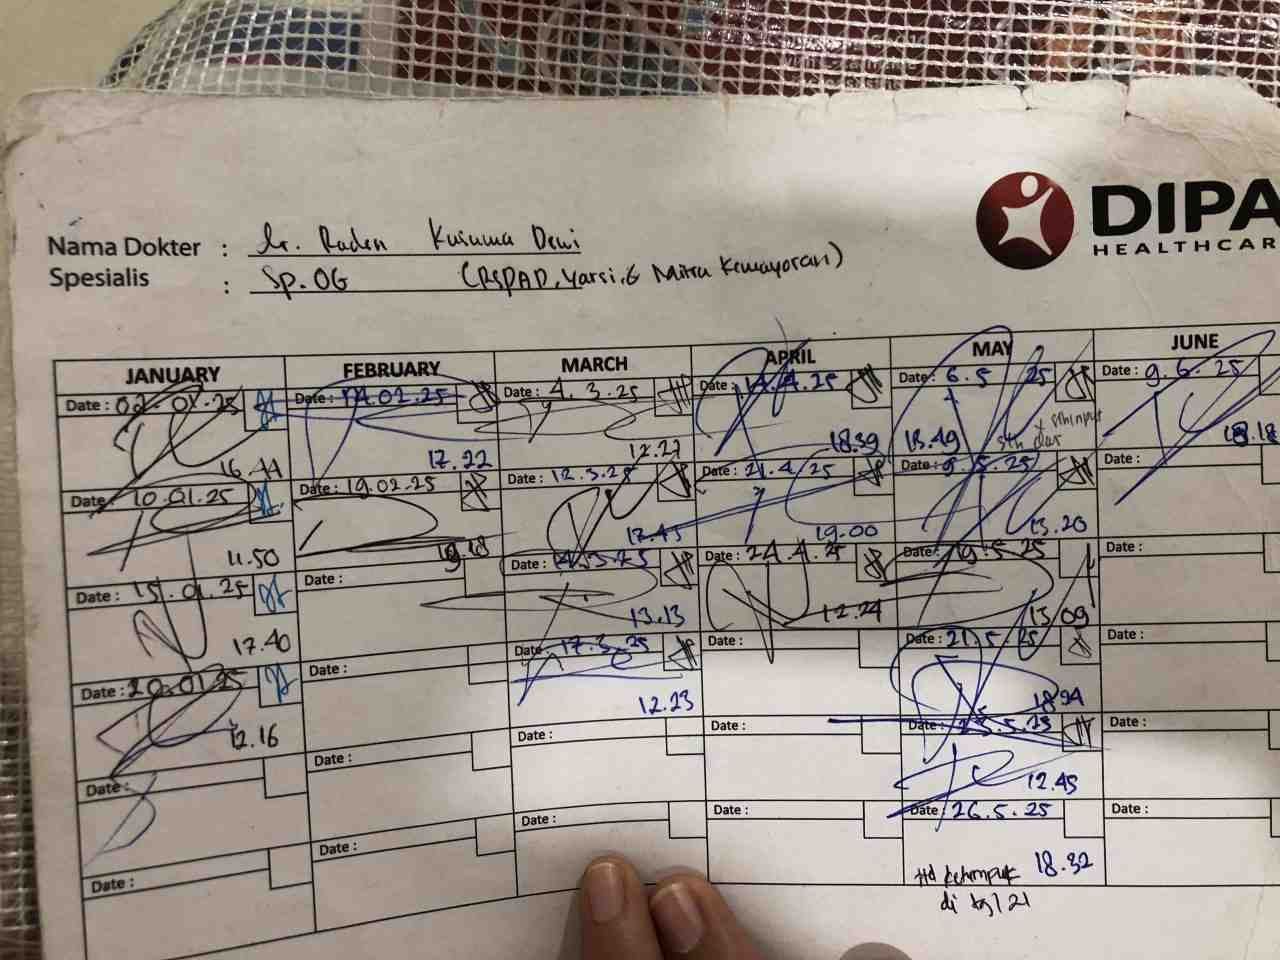 DIPA
HEALTHCAR
Nama Dokter : dr. Raden Kusuma Dewi
Spesialis : Sp.OG (RSPAD, Yarsi, & Mitra Kemayoran)
JANUARY FEBRUARY MARCH APRIL MAY JUNE
Date : 02.01.25 Date : 14.02.25 Date : 4.3.25 Date : 14.4.25 Date : 6.5 25 9.6.25
16.44 17.22 12.27 18.39 18.49 18.18
Date : 10.01.25 Date : 19.02.25 Date : 12.3.25 Date : 21.4.25 Date : 9.5.25 Date :
11.50 19.18 17.45 19.00 13.20
Date : 15.01.25 Date : Date : 14.3.25 Date : 24.4.25 Date : 19.5.25 Date :
17.40 13.13 12.24 13.09
Date : 20.01.25 Date : Date : 17.3.25 Date : Date : 21.5.25 Date :
12.16 12.23 18.34
Date : Date : Date : Date : Date : 5.25 Date :
12.45
Date : Date : Date : Date : Date : 26.5.25 Date :
18.32
di tgl 21